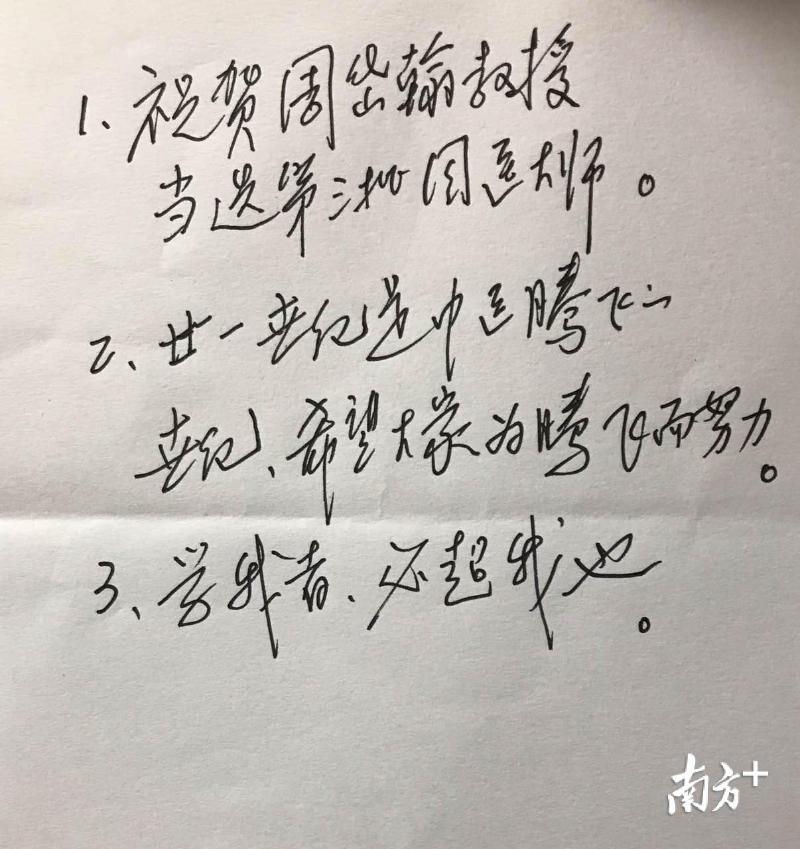 1、祝贺周岱翰教授
当选第三批国医大师。
2、廿一世纪是中医腾飞之
世纪、希望大家为腾飞而努力。
3、学我者、必超我也。
南方+